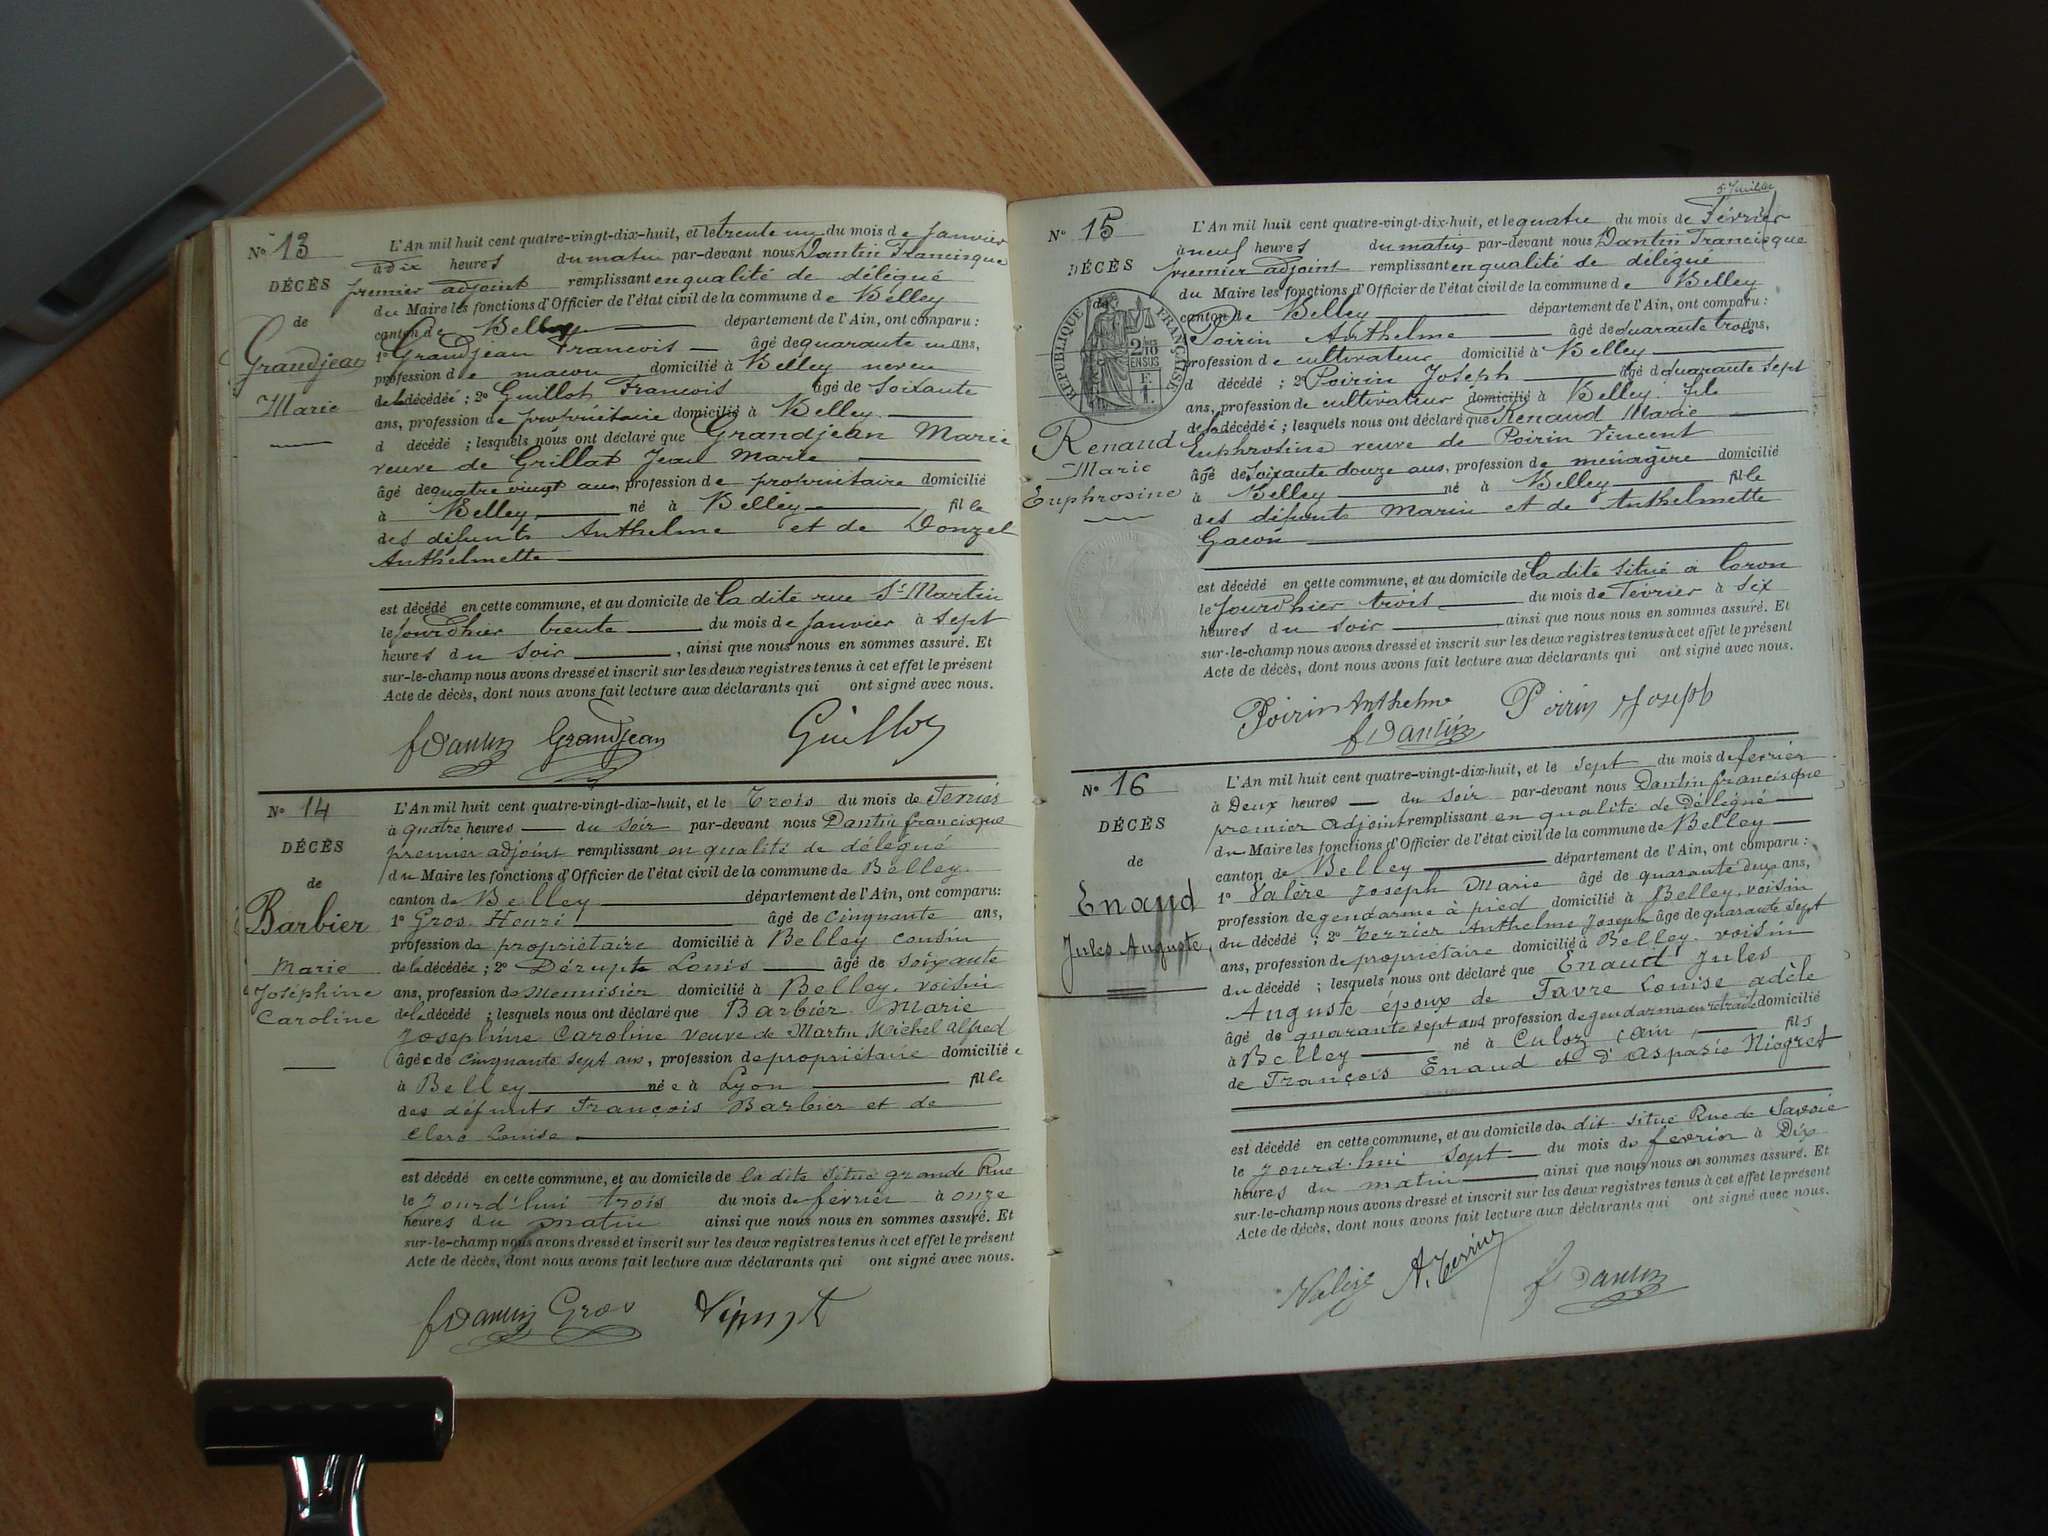 N° 13
DÉCÈS
de
Grandjean
Marie
L'An mil huit cent quatre-vingt-dix-huit, et le trente un du mois de Janvier
à dix heures du matin par-devant nous Dantin Francisque
premier adjoint remplissant en qualité de délégué
du Maire les fonctions d'Officier de l'état civil de la commune de Belley
canton de Belley département de l'Ain, ont comparu :
1° Grandjean Francois âgé de quarante un ans,
profession de macon domicilié à Belley neveu
de la décédée ; 2° Guillot Francois âgé de soixante
ans, profession de propriétaire domicilié à Belley
d décédé ; lesquels nous ont déclaré que Grandjean Marie
veuve de Grillat Jean Marie
âgé de quatre vingt ans, profession de propriétaire domicilié
à Belley né à Belley fille
des défunts Anthelme et de Donzel
Anthelmette
est décédé en cette commune, et au domicile de la dite rue St Martin
le jourd'hier trente du mois de Janvier à sept
heures du soir, ainsi que nous nous en sommes assuré. Et
sur-le-champ nous avons dressé et inscrit sur les deux registres tenus à cet effet le présent
Acte de décès, dont nous avons fait lecture aux déclarants qui ont signé avec nous.
f Dantin Grandjean Guillot
N° 14
DÉCÈS
de
Barbier
Marie
Joséphine
Caroline
L'An mil huit cent quatre-vingt-dix-huit, et le Trois du mois de Fevrier
à quatre heures du soir par-devant nous Dantin francisque
premier adjoint remplissant en qualité de délegué
du Maire les fonctions d'Officier de l'état civil de la commune de Belley
canton de Belley département de l'Ain, ont comparu :
1° Gros Henri âgé de cinquante ans,
profession de propriétaire domicilié à Belley cousin
de la décédée ; 2° Dérupt Louis âgé de soixante
ans, profession de Menuisier domicilié à Belley. voisin
de la décédé ; lesquels nous ont déclaré que Barbier Marie
Josephine Caroline veuve de Martin Michel Alfred
âgée de cinquante sept ans, profession de propriétaire domiciliée
à Belley née à Lyon fille
des défunts François Barbier et de
Clerc Louise
est décédé en cette commune, et au domicile de la dite situé grande Rue
le Jourd'hui trois du mois de février à onze
heures du matin ainsi que nous nous en sommes assuré. Et
sur-le-champ nous avons dressé et inscrit sur les deux registres tenus à cet effet le présent
Acte de décès, dont nous avons fait lecture aux déclarants qui ont signé avec nous.
f Dantin Gros
N° 15
DÉCÈS
de
RÉPUBLIQUE FRANÇAISE
2/10 EN SUS
F.
1.
Renaud
Marie
Euphrosine
L'An mil huit cent quatre-vingt-dix-huit, et le quatre du mois de Février
à neuf heures du matin par-devant nous Dantin Francisque
premier adjoint remplissant en qualité de délégué
du Maire les fonctions d'Officier de l'état civil de la commune de Belley
canton de Belley département de l'Ain, ont comparu :
Poirin Anthelme âgé de quarante trois ans,
profession de cultivateur domicilié à Belley
d décédé ; 2° Poirin Joseph âgé de quarante sept
ans, profession de cultivateur domicilié à Belley fils
de la décédée ; lesquels nous ont déclaré que Renaud Marie
Euphrosine veuve de Poirin Vincent
âgé de soixante douze ans, profession de menagère domicilié
à Belley né à Belley fille
des défunts Marin et de Anthelmette
Gacon
est décédé en cette commune, et au domicile de la dite situé à Coron
le Jourd'hier trois du mois de Février à six
heures du soir, ainsi que nous nous en sommes assuré. Et
sur-le-champ nous avons dressé et inscrit sur les deux registres tenus à cet effet le présent
Acte de décès, dont nous avons fait lecture aux déclarants qui ont signé avec nous.
Poirin Anthelme Poirin Joseph
f Dantin
N° 16
DÉCÈS
de
Enaud
Jules Auguste,
L'An mil huit cent quatre-vingt-dix-huit, et le sept du mois de fevrier
à Deux heures du soir par-devant nous Dantin francisque
premier adjoint remplissant en qualité de Délégué
du Maire les fonctions d'Officier de l'état civil de la commune de Belley
canton de Belley département de l'Ain, ont comparu :
1° Valère Joseph Marie âgé de quarante deux ans,
profession de gendarme à pied domicilié à Belley, voisin
du décédé ; 2° Terrier Anthelme Joseph âgé de quarante sept
ans, profession de propriétaire domicilié à Belley. voisin
du décédé ; lesquels nous ont déclaré que Enaud Jules
Auguste époux de Favre Louise adèle
âgé de quarante sept ans profession de gendarme en retraite domicilié
à Belley né à Culoz (ain) fils
de François Enaud et d'Aspasie Niogret
est décédé en cette commune, et au domicile du dit situé Rue de Savoie
le Jourd-hui sept du mois de fevrier à Dix
heures du matin ainsi que nous nous en sommes assuré. Et
sur-le-champ nous avons dressé et inscrit sur les deux registres tenus à cet effet le présent
Acte de décès, dont nous avons fait lecture aux déclarants qui ont signé avec nous.
Valère A. Terrier f Dantin